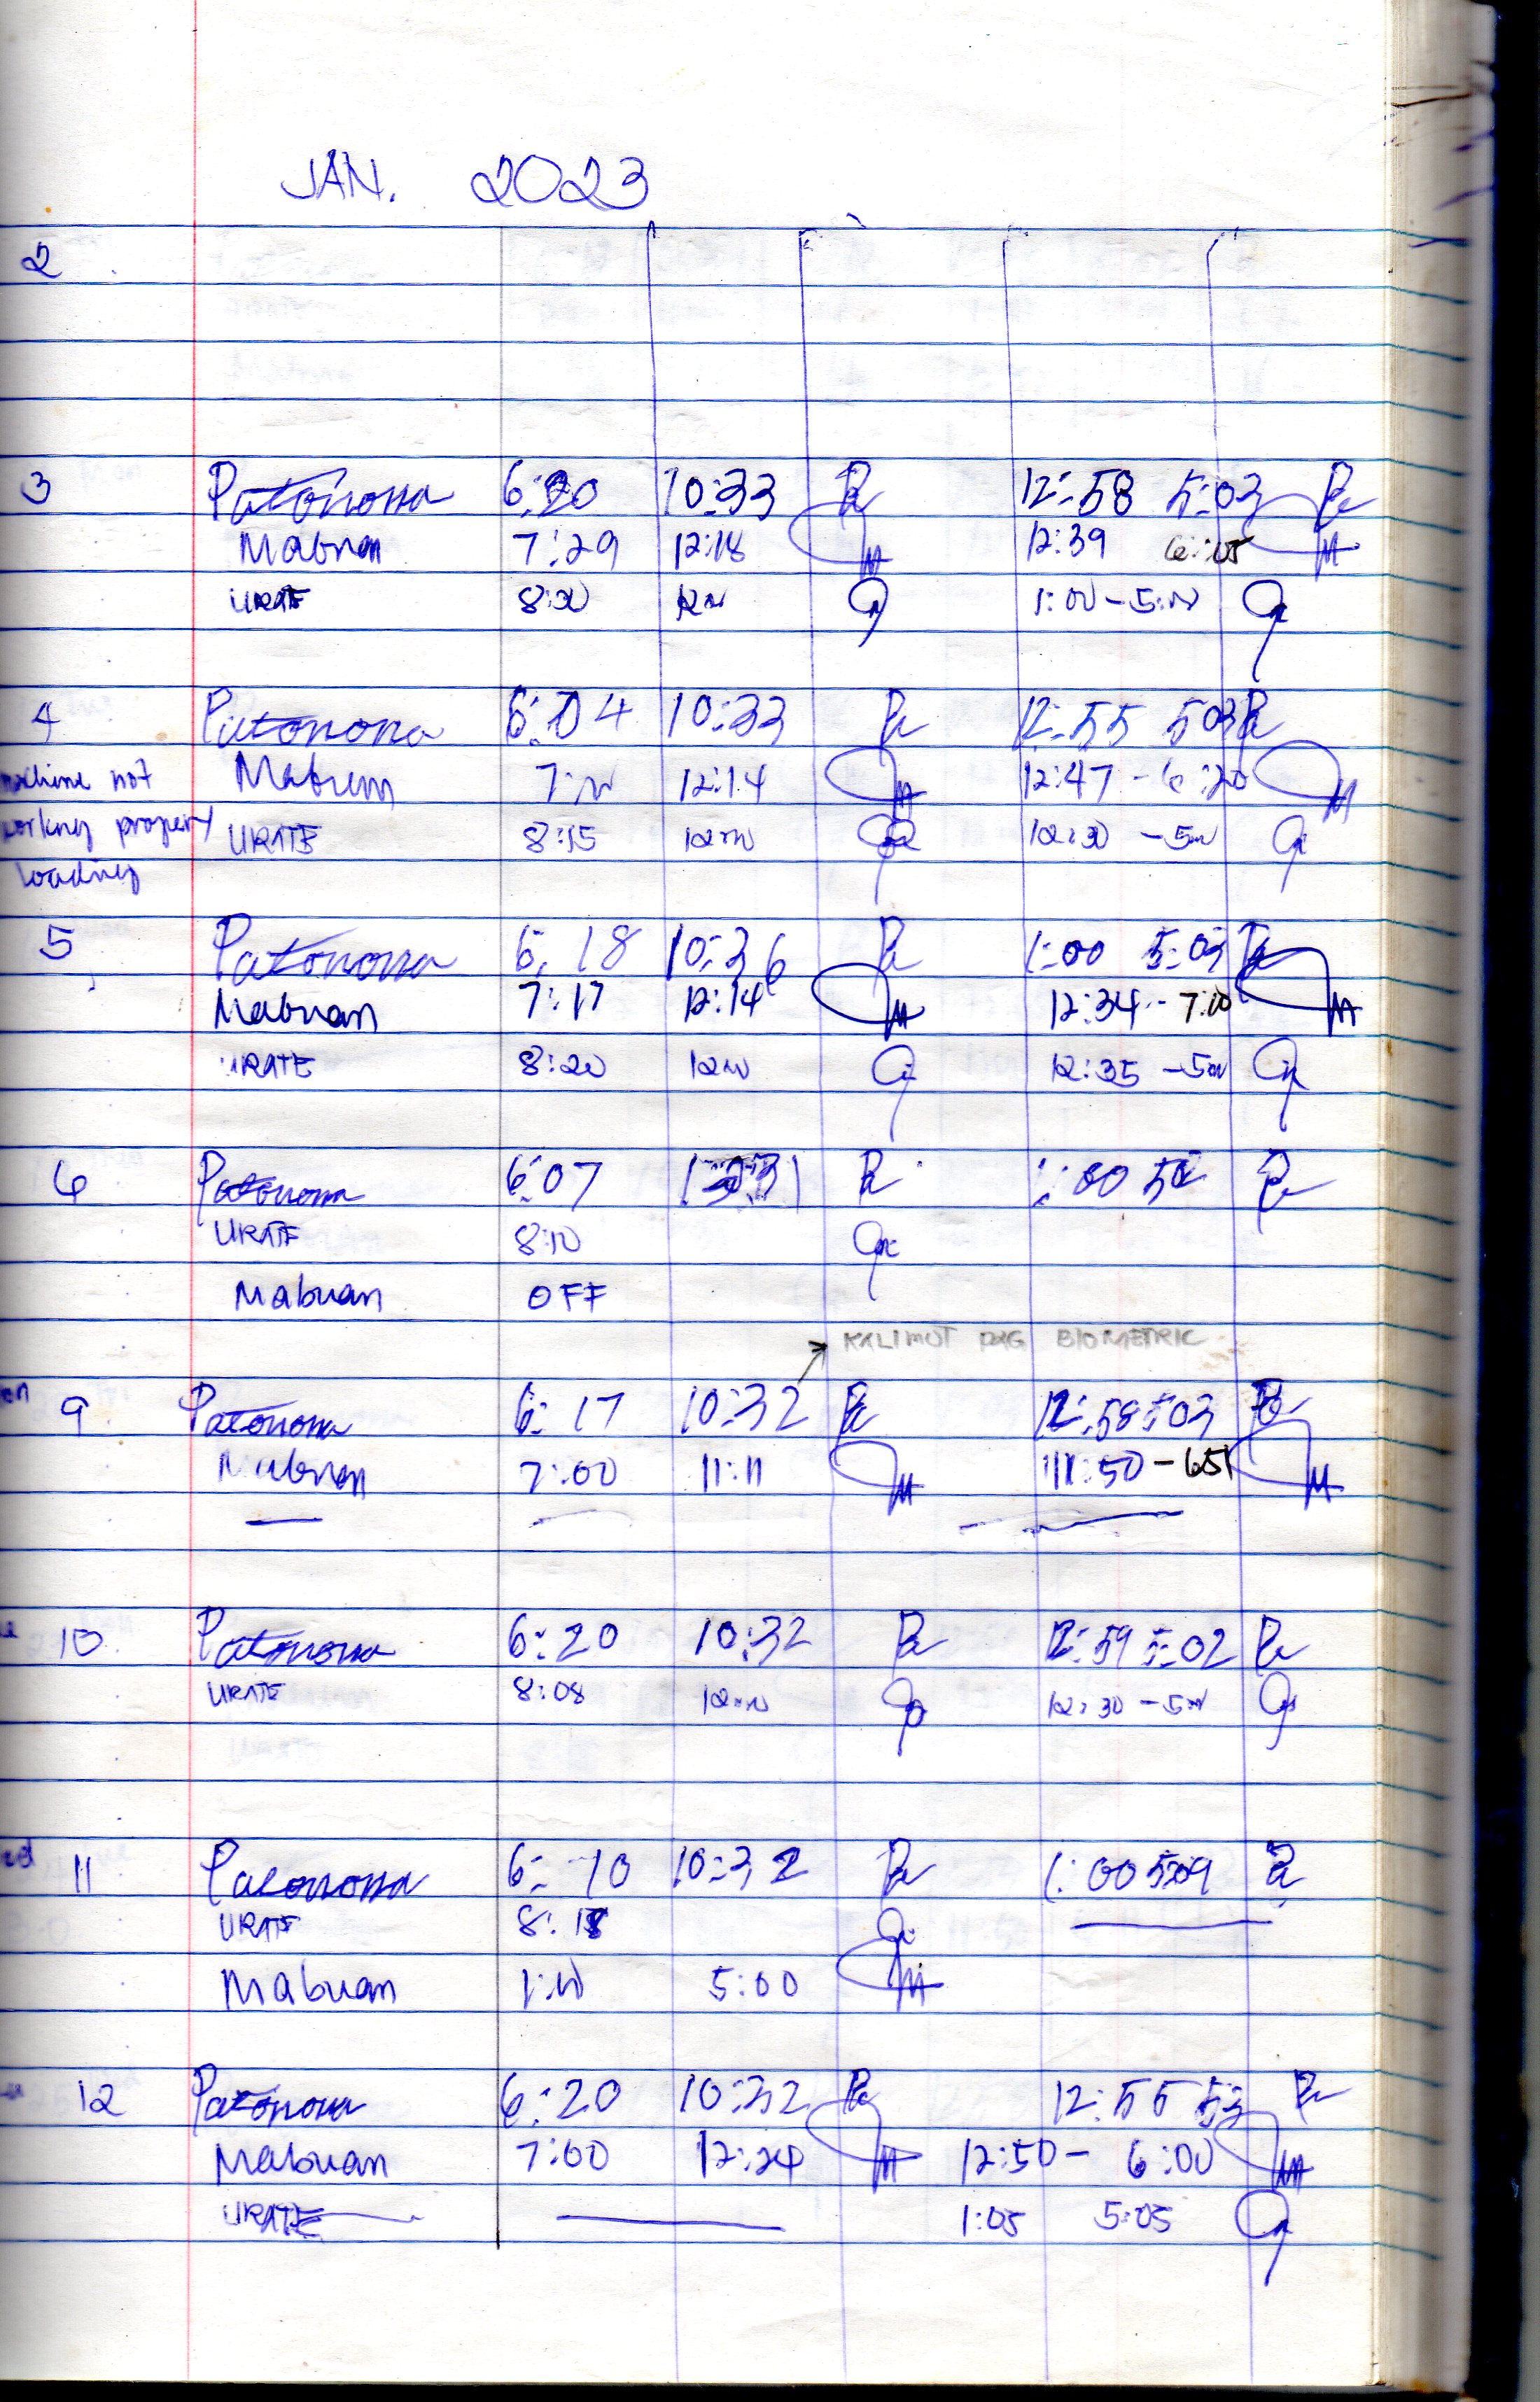 JAN. 2023
2
3 Patonona 6:20 10:33 12:58 5:03
Mabuan 7:29 12:18 12:39 6:05
URATE 8:20 12 1:00 - 5:00
4 Patonona 6:04 10:33 12:55 503
machine not Mabuan 12:14 12:47 - 6:20
working property URATE 8:15 12 12:30 - 5
loading
5 Patonona 6:18 10:36 1:00 5:03
Mabuan 7:17 12:14 12:34 - 7:10
URATE 8:20 12 12:35 - 5
6 Patonona 6:07 1:00
URATE 8:10
Mabuan OFF
KALIMOT PAG BIOMETRIC
9 Patonona 6:17 10:32 12:58 5:03
Mabuan 7:00 11:11 11:50 - 651
10 Patonona 6:20 10:32 12:59 5:02
URATE 8:08 12 12:30 - 5
11 Patonona 6:10 10:32 1:00 5:09
URATE 8:18
Mabuan 1:10 5:00
12 Patonona 6:20 10:32 12:55 53
Mabuan 7:00 12:24 12:50 - 6:00
URATE 1:05 5:05